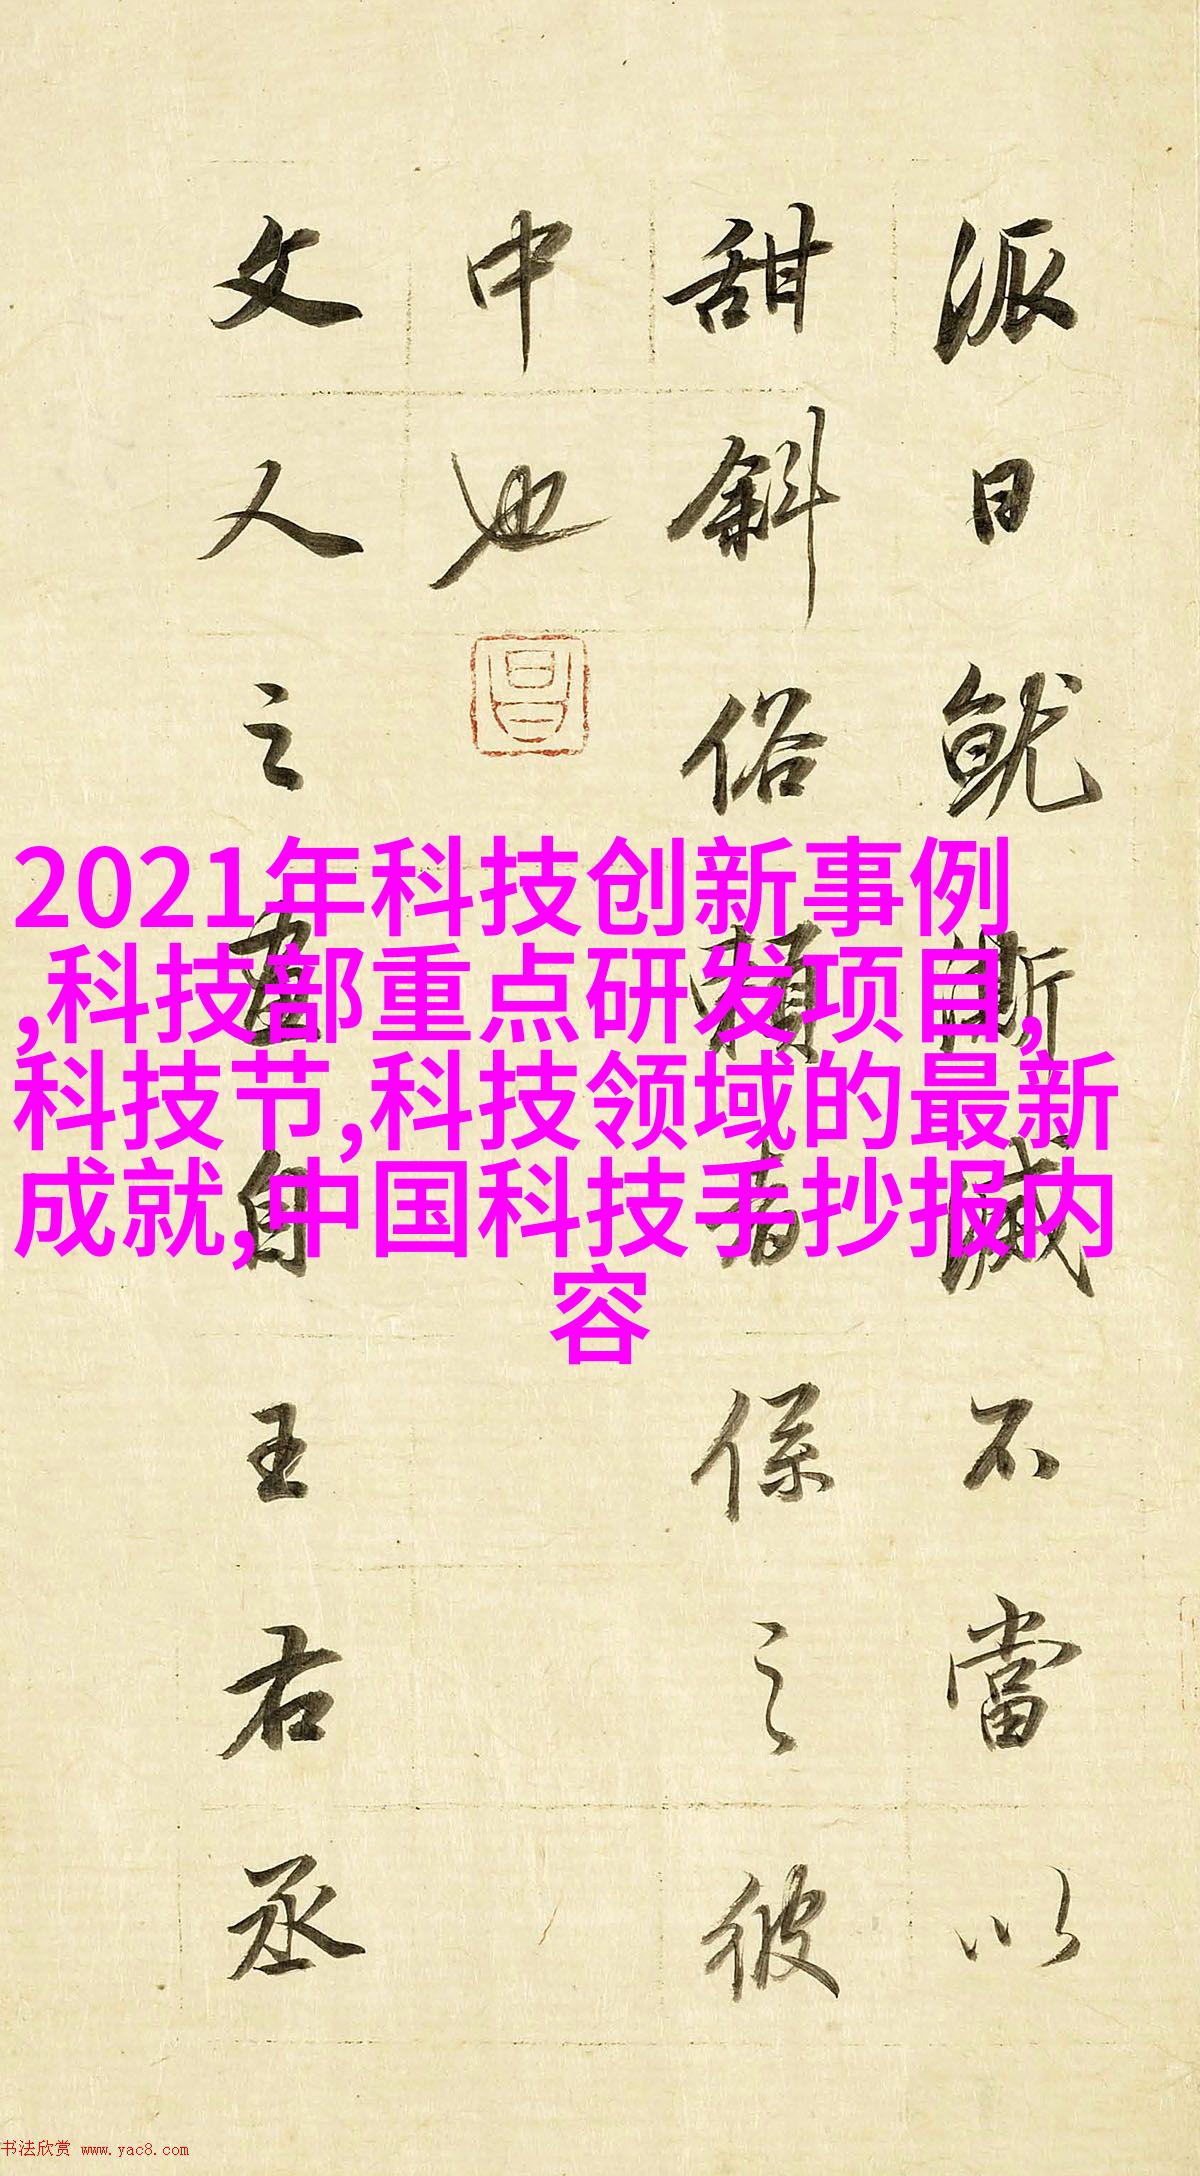 派日就澌滅不當以
甜斜俗賴者係之彼
中也
昌
文人之畫自王右丞
2021年科技创新事例
,科技部重点研发项目,
科技节,科技领域的最新
成就,中国科技手抄报内
容
书法欣赏 www.yac8.com